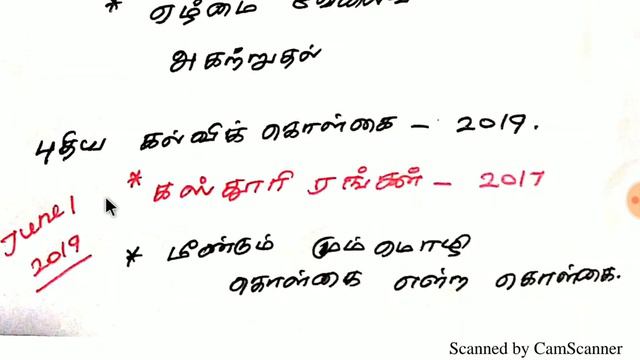 * ஏழ்மை
அகற்றுதல்
புதிய கல்விக் கொள்கை - 2019.
* கஸ்தூரி ரங்கன் - 2017
June 1
2019
* மீண்டும் மும்மொழி
கொள்கை என்ற கொள்கை.
Scanned by CamScanner